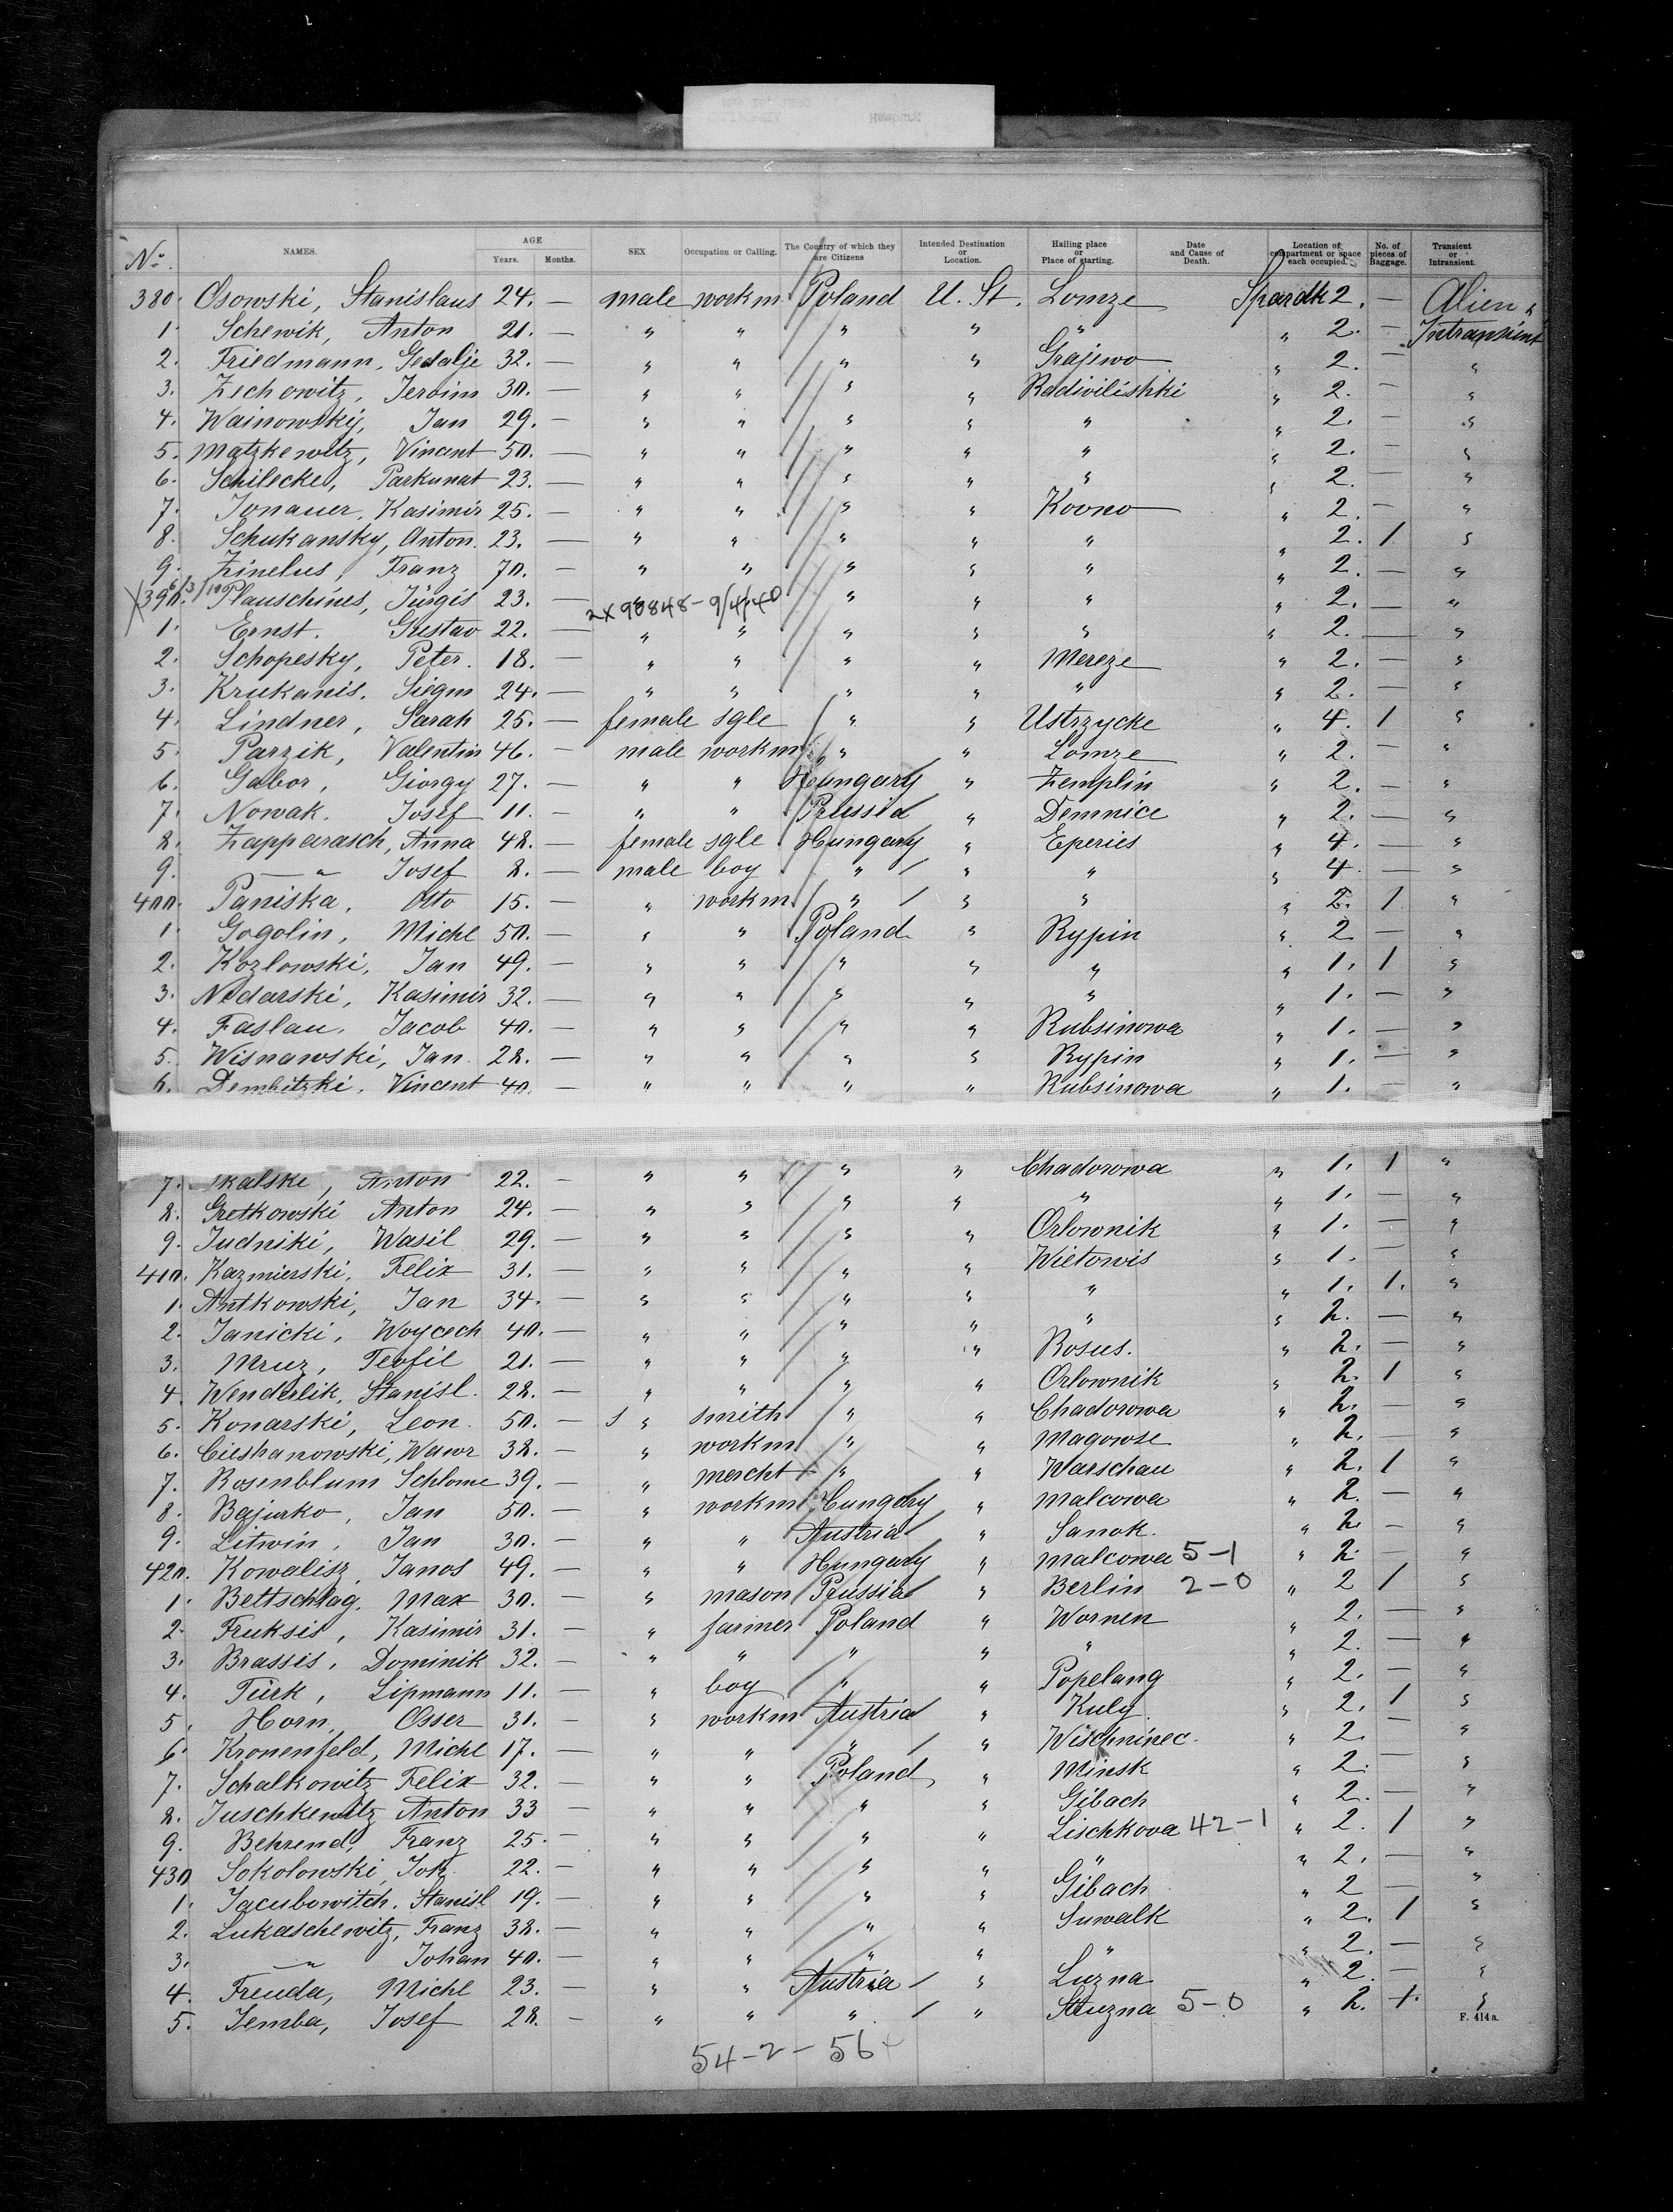 No. NAMES. AGE Years. Months. SEX Occupation or Calling. The Country of which they are Citizens Intended Destination or Location. Hailing place or Place of starting. Date and Cause of Death. Location of compartment or space each occupied. No. of pieces of Baggage. Transient or Intransient.
380. Osowski, Stanislaus 24. — male workm. Poland U. St. Lomze Spardk 2. — Alien &
1. Schewik, Anton 21. — " " " " " " 2. — Intransient
2. Friedmann, Gedalje 32. — " " " " Grajewo " 2. — "
3. Zechowitz, Jeroim 30. — " " " " Radivilishki " 2. — "
4. Wainowsky, Jan 29. — " " " " " " 2. — "
5. Matzkewitz, Vincent 50. — " " " " " " 2. — "
6. Schilecke, Parkunat 23. — " " " " " " 2. — "
7. Jonauer, Kasimir 25. — " " " " Kovno " 2. — "
8. Schukansky, Anton. 23. — " " " " " " 2. 1 "
9. Zinelus, Franz 70. — " " " " " " 2. — "
X 390. Plauschines, Jürgis 23. — 2x 90848-9/4/40 " " " " 2. — "
1. Ernst. Gustav 22. — " " " " " " 2. — "
2. Schopesky, Peter. 18. — " " " " Mereze " 2. — "
3. Krukanis. Siegm 24. — " " " " " " 2. — "
4. Lindner, Sarah 25. — female sgle " " Ustrzycke " 4. 1 "
5. Parzik, Valentin 46. — male workm. " " Lomze " 2. — "
6. Gabor, Giorgy 27. — " " Hungary " Zemplin " 2. — "
7. Nowak. Josef 11. — " " Prussia " Demnice " 2. — "
8. Zapparasch, Anna 48. — female sgle Hungary " Eperies " 4. — "
9. —"— Josef 8. — male boy " " " " 4 — "
400. Paniska, Otto 15. — " workm. " " " " 2. 1 "
1. Gogolin, Michl 50. — " " Poland " Rypin " 2 — "
2. Kozlowski, Jan 49. — " " " " " " 1. 1 "
3. Nedarski, Kasimir 32. — " " " " " " 1. — "
4. Faslau. Jacob 40. — " " " " Rubsinowa " 1. — "
5. Wisnawski, Jan. 28. — " " " " Rypin " 1. — "
6. Dembitzki. Vincent 40. " " " " Rubsinowa " 1. — "
7. Skalski, Anton 22. — " " " " Chadorowa " 1. 1 "
8. Gretkowski Anton 24. — " " " " " " 1. — "
9. Judniki, Wasil 29. — " " " " Orlownik " 1. — "
410. Kazmierski. Felix 31. — " " " " Wietowis " 1. — "
1. Antkowski, Jan 34. — " " " " " " 1. 1. "
2. Janicki, Woycech 40. — " " " " " " 2. — "
3. Mruz, Teofil 21. — " " " " Rosus. " 2. — "
4. Wenderlik, Stanisl. 28. — " " " " Orlownik " 2. 1 "
5. Konarski, Leon. 50. — " smith " " Chadorowa " 2. — "
6. Cieshanowski, Wawr 38. — " workm. " " Magowse " 2. — "
7. Rosenblum Schlome 39. — " mercht " " Warschau " 2. 1 "
8. Bajurko, Jan 50. — " workm Hungary " Malcowa " 2. — "
9. Litwin, Jan 30. — " " Austria " Sanok. " 2 — "
420. Kowalisz Janos 49. — " " Hungary " Malcowa 5-1 " 2. — "
1. Bettschlag. Max 30. — " mason Prussia " Berlin 2-0 " 2 1 "
2. Fruksis, Kasimir 31. — " farmer Poland " Wornen " 2. — "
3. Brassis, Dominik 32. — " " " " " " 2. — "
4. Türk, Lipmann 11. — " boy " " Popelang " 2. — "
5. Horn, Osser 31. — " workm Austria " Kuly " 2. 1 "
6. Kronenfeld, Michl 17. — " " " " Wischninec. " 2. — "
7. Schalkowitz Felix 32. — " " Poland " Minsk " 2. — "
8. Juschkewitz Anton 33 — " " " " Gibach " 2. — "
9. Behrend, Franz 25. — " " " " Lischkova 42-1 " 2. 1 "
430 Sokolowski, Joh. 22. — " " " " " " 2. — "
1. Jacubowitch. Stanisl 19. — " " " " Gibach " 2 — "
2. Lukaschewitz, Franz 38. — " " " " Suwalk " 2. 1 "
3. —"— Johan 40. — " " " " " " 2. — "
4. Freuda, Michl 23. — " " Austria " Luzna " 2. — "
5. Jemba, Josef 28. — " " " " Stuzna 5-0 " 2. 1. "
F. 414 a.
54-2-56